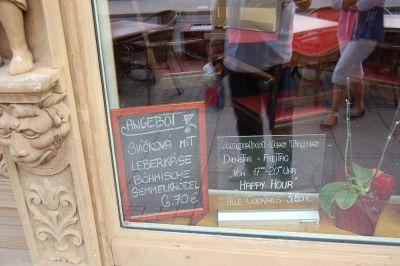 ANGEBOT!
SVÍČKOVÁ MIT
LEBERKÄSE
BÖHMISCHE
SEMMELKNÖDEL
6,70 €
Angebot des Tages
DIENSTAG - FREITAG
"VON 17-20 UHR"
"HAPPY HOUR"
ALLE COCKTAILS 5,80 €